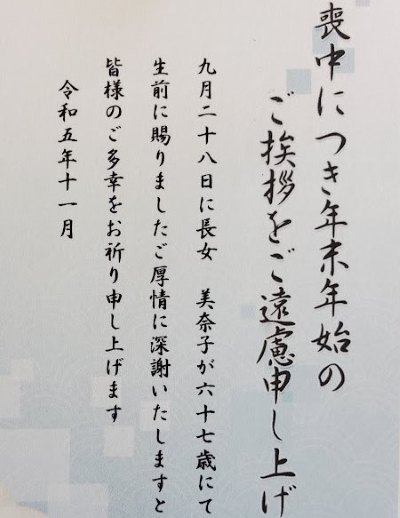 喪中につき年末年始の
ご挨拶をご遠慮申し上げ
九月二十八日に長女 美奈子が六十七歳にて
生前に賜りましたご厚情に深謝いたしますと
皆様のご多幸をお祈り申し上げます
令和五年十一月